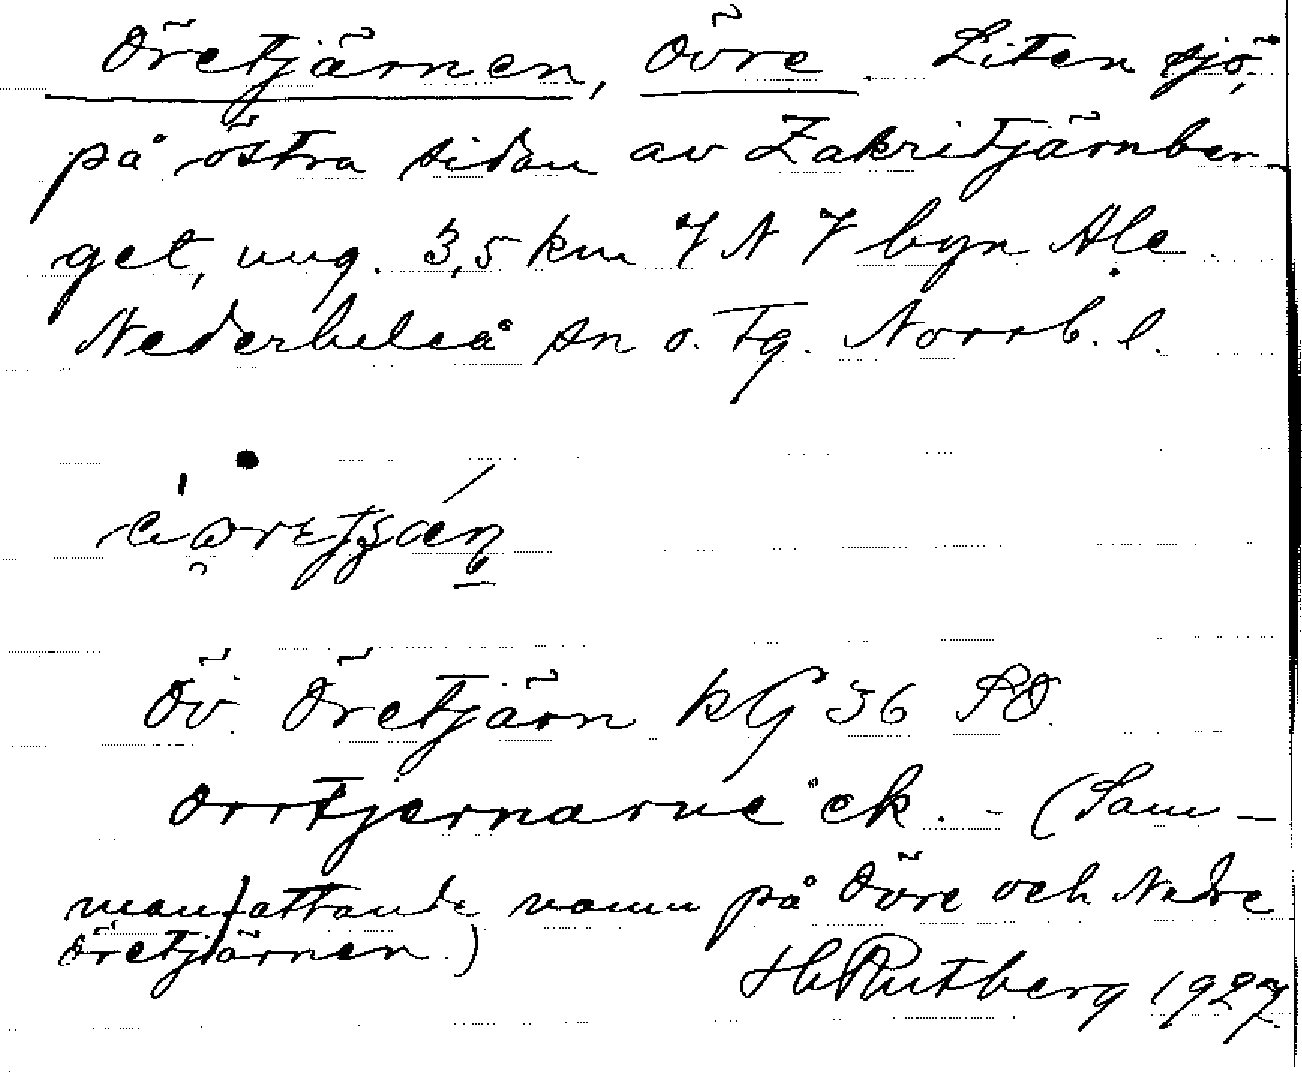 Öretjärnen, Övre. Liten sjö,
på östra sidan av Zakritjärnber-
get, ung. 3,5 km N byn Ale
Nederluleå sn o. tg. Norrb. l.
Öv. Öretjärn kG 36 SO.
Orrtjernarne ek. - (Sam-
manfattande namn på Övre och Nedre
Öretjärnen.)
H Rutberg 1927